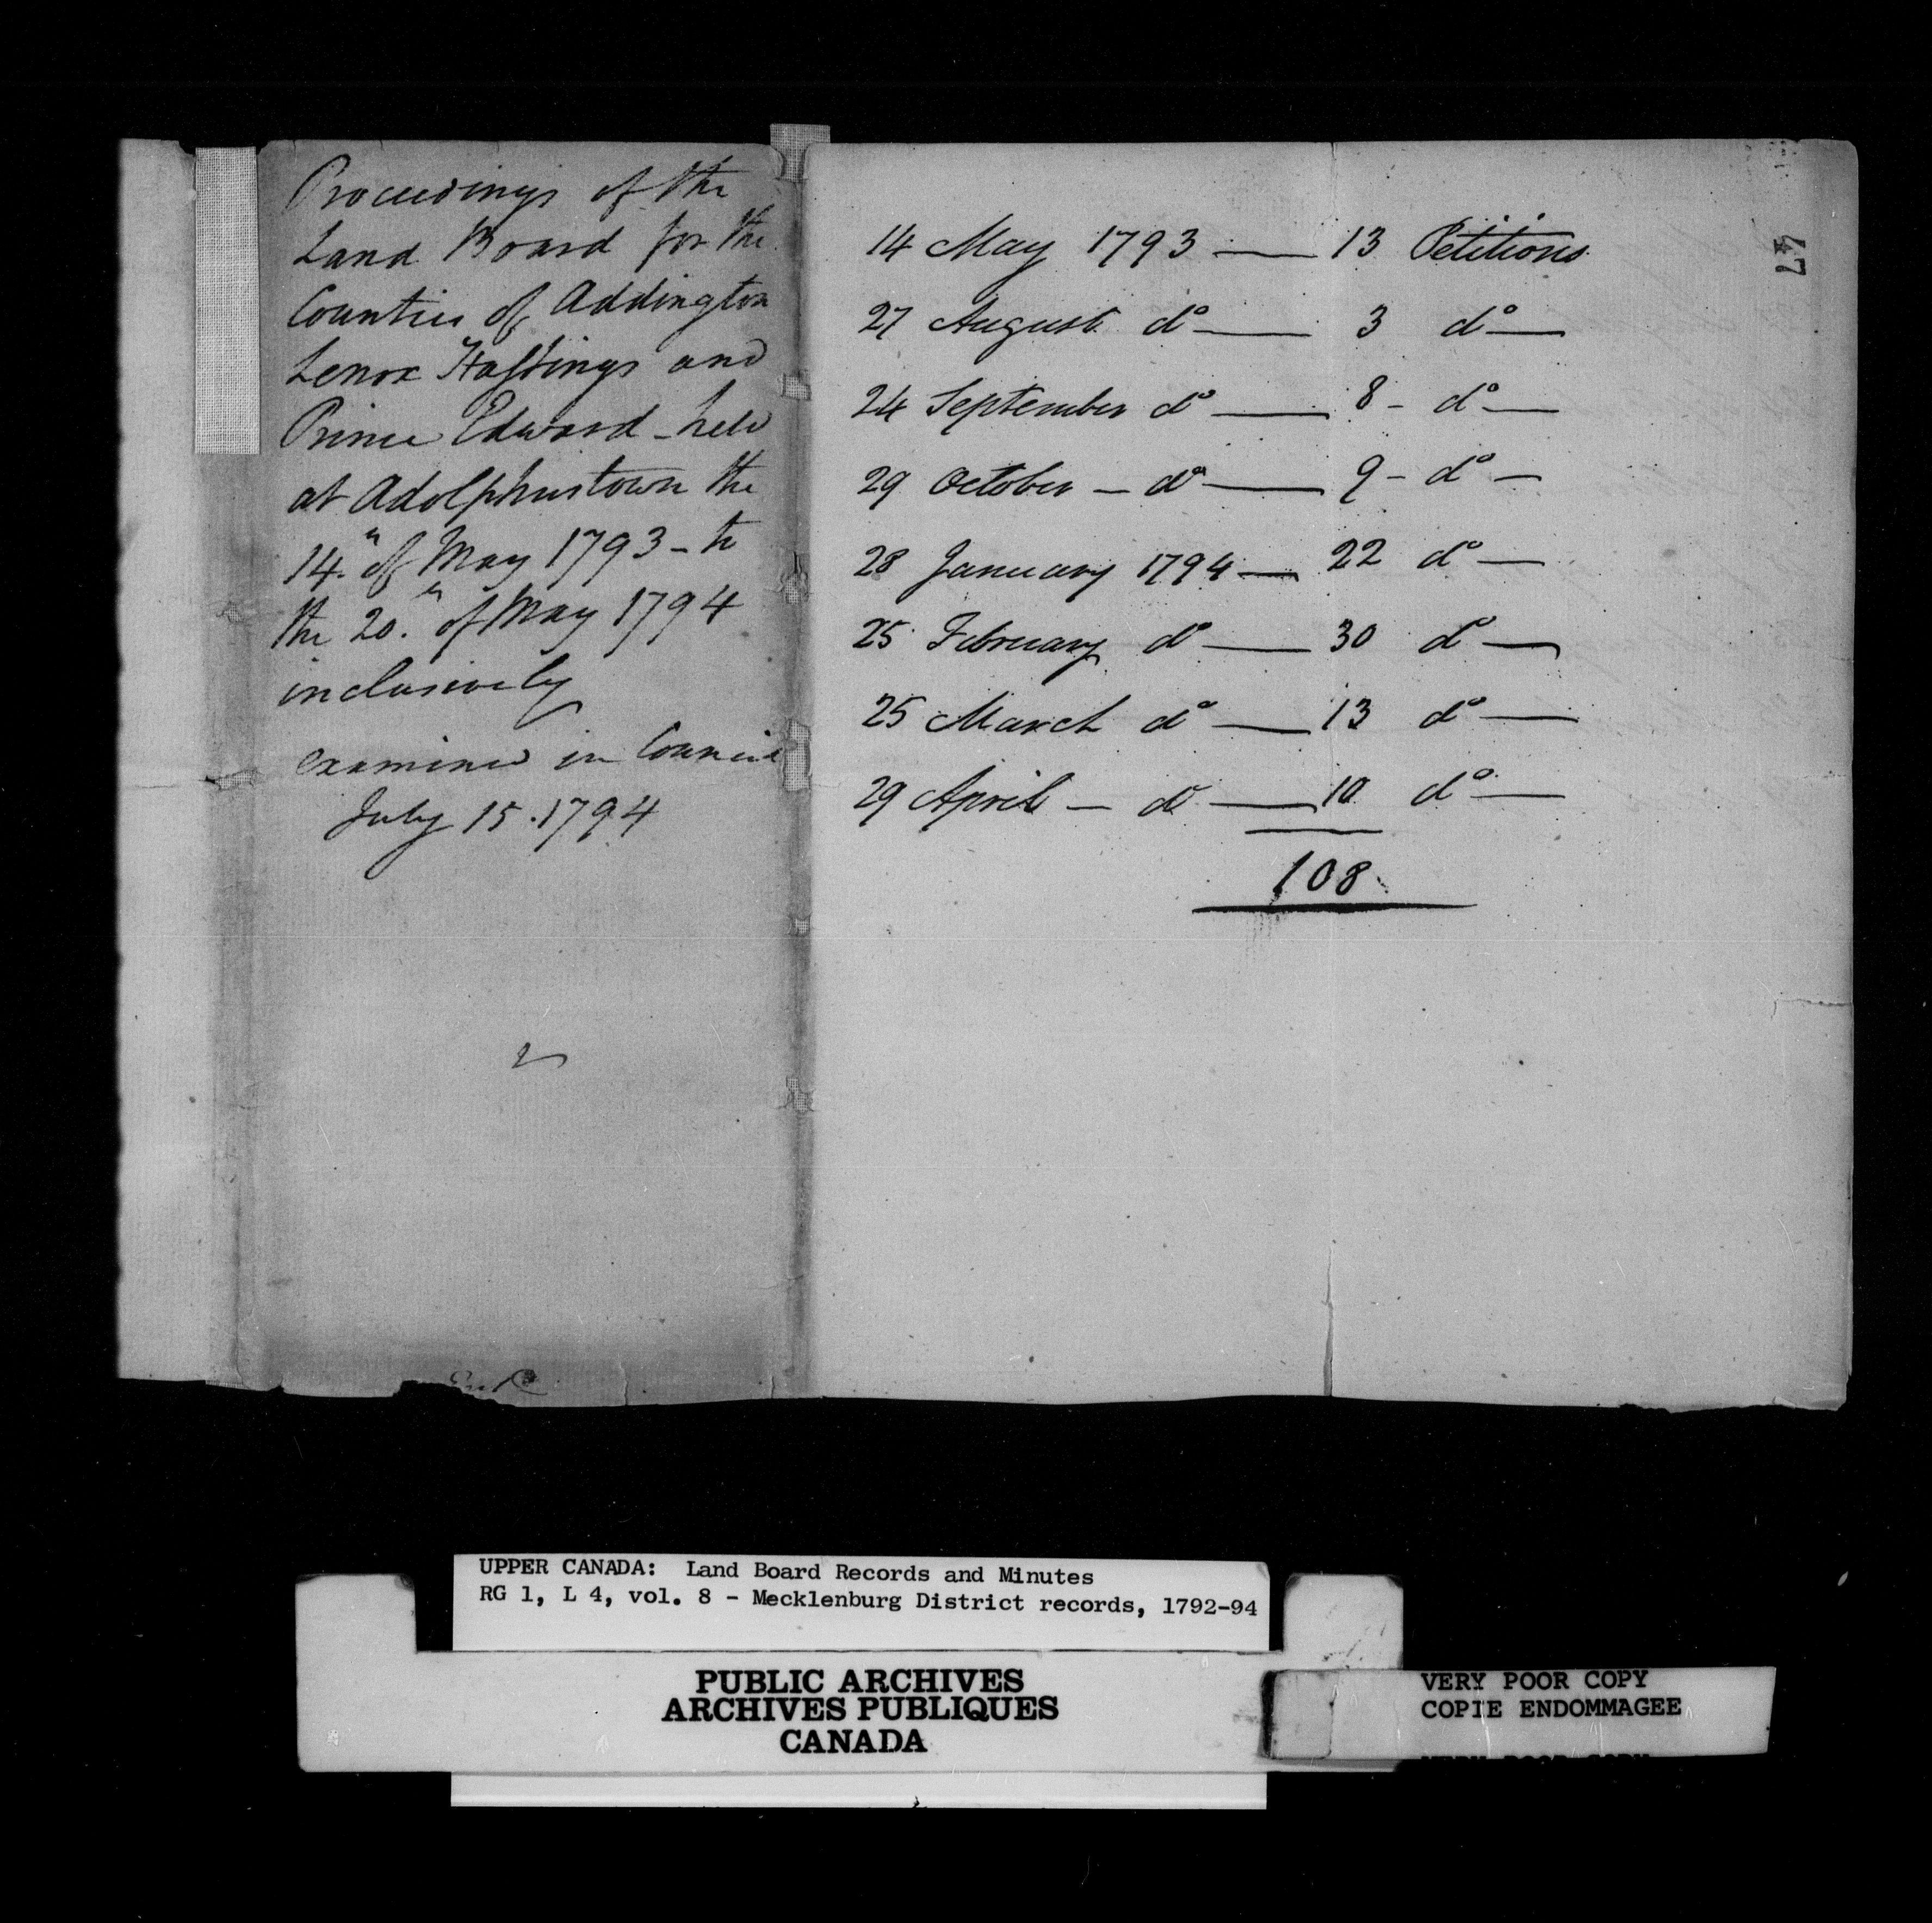 Proceedings of the
Land Board for the
Counties of Addington
Lenox Hastings and
Prince Edward - held
at Adolphustown the
14.th of May 1793 - to
the 20.th of May 1794
inclusively
examined in Council
July 15. 1794
14 May 1793 — 13 Petitions
27 August do — 3 do —
24 September do — 8 - do —
29 October - do — 9 - do —
28 January 1794 — 22 do —
25 February do — 30 do —
25 March do — 13 do —
29 April - do — 10 do —
108
47
UPPER CANADA: Land Board Records and Minutes
RG 1, L 4, vol. 8 - Mecklenburg District records, 1792-94
PUBLIC ARCHIVES
ARCHIVES PUBLIQUES
CANADA
VERY POOR COPY
COPIE ENDOMMAGEE
VERY POOR COPY